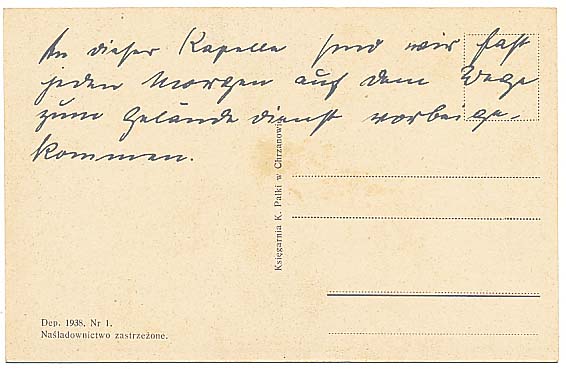 An dieser Kapelle sind wir fast
jeden Morgen auf dem Wege
zum Geländedienst vorbeige-
kommen.
Księgarnia K. Pałki w Chrzanowie
Dep. 1938, Nr 1.
Naśladownictwo zastrzeżone.